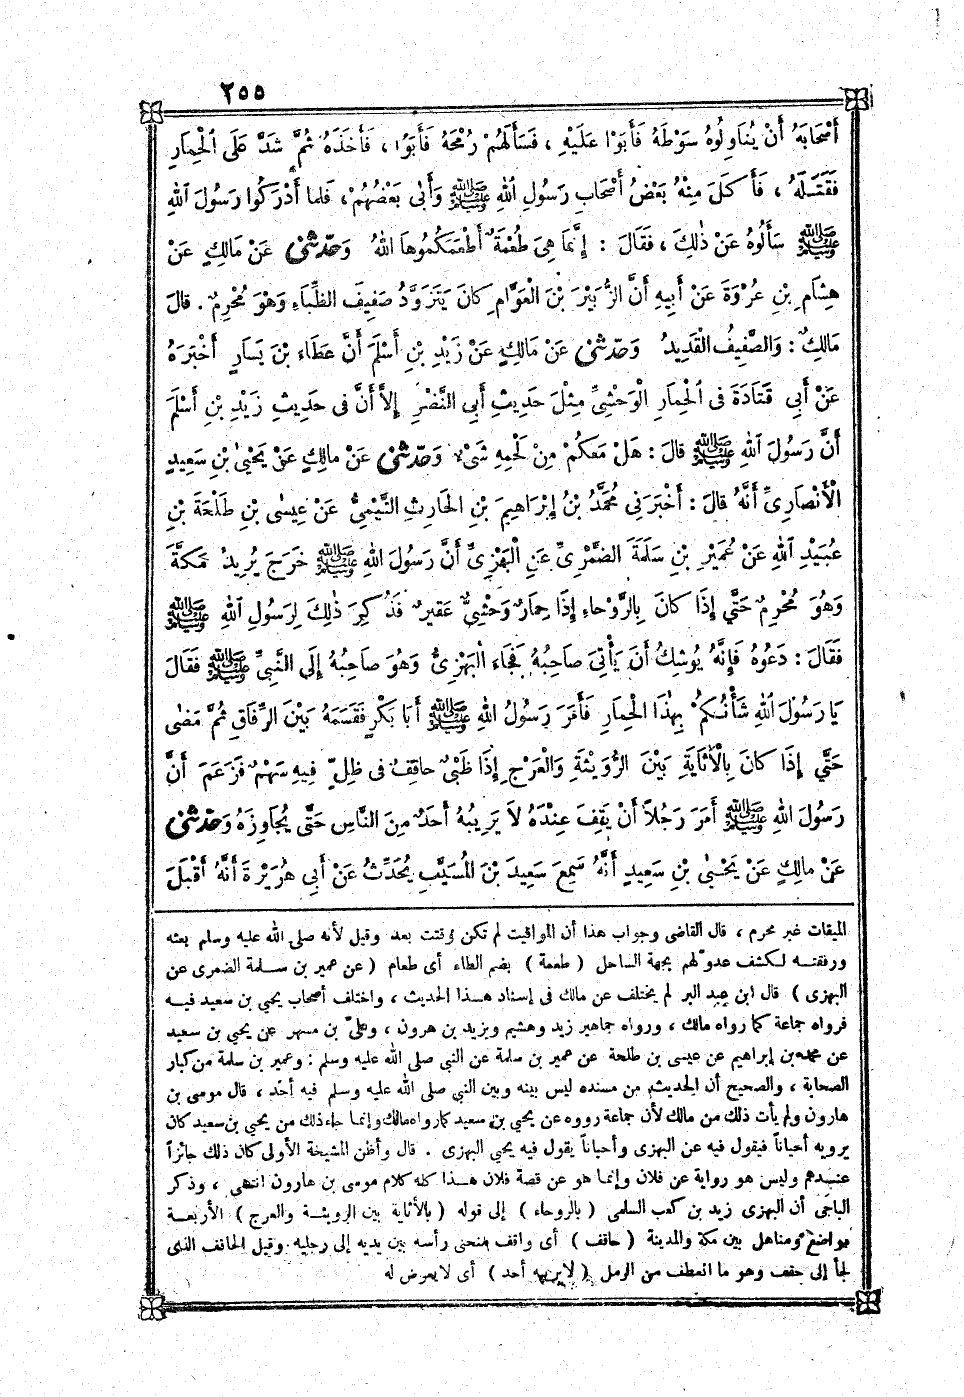 ٢٥٥
أَصْحَابَهُ أَنْ يُنَاوِلُوهُ سَوْطَهُ فَأَبَوْا عَلَيْهِ ، فَسَأَلَهُمْ رُمْحَهُ فَأَبَوْا ، فَأَخَذَهُ ثُمَّ شَدَّ عَلَى الْحِمَارِ
فَقَتَلَهُ ، فَأَكَلَ مِنْهُ بَعْضُ أَصْحَابِ رَسُولِ اللهِ ﷺ وَأَبَى بَعْضُهُمْ ، فَلما أَدْرَكُوا رَسُولَ اللهِ
ﷺ سَأَلُوهُ عَنْ ذٰلِكَ ، فَقَالَ : إِنَّمَا هِىَ طُعْمَةٌ أَطْعَمَكُمُوهَا اللهُ وَحَدَّثَنِى عَنْ مَالِكٍ عَنْ
هِشَامِ بْنِ عُرْوَةَ عَنْ أَبِيهِ أَنَّ الزُّبَيْرَ بْنَ الْعَوَّامِ كَانَ يَتَزَوَّدُ صَفِيفَ الظِّبَاءِ وَهُوَ مُحْرِمٌ . قالَ
مَالِكٌ : وَالصَّفِيفُ الْقَدِيدُ وَحَدَّثَنِى عَنْ مَالِكٍ عَنْ زَيْدِ بْنِ أَسْلَمَ أَنَّ عَطَاءَ بْنَ يَسَارٍ أَخْبَرَهُ
عَنْ أَبِى قَتَادَةَ فى الْحِمَارِ الْوَحْشِىِّ مِثْلَ حَدِيثِ أَبِى النَّضْرِ إِلاَّ أَنَّ فى حَدِيثِ زَيْدِ بْنِ أَسْلَمَ
أَنَّ رَسُولَ اللهِ ﷺ قالَ : هَلْ مَعَكُمْ مِنْ لَحْمِهِ شَىْءٌ وَحَدَّثَنِى عَنْ مالِكٍ عَنْ يَحْيَى بْنِ سَعِيدٍ
الْأَنْصَارِىِّ أَنَّهُ قالَ : أَخْبَرَنِى مُحَمَّدُ بْنُ إِبْرَاهِيمَ بْنِ الحَارِثِ التَّيْمِىُّ عَنْ عِيسٰى بْنِ طَلْحَةَ بْنِ
عُبَيْدِ اللهِ عَنْ عُمَيْرِ بْنِ سَلَمَةَ الضَّمْرِىِّ عَنِ الْبَهْزِىِّ أَنَّ رَسُولَ اللهِ ﷺ خَرَجَ يُرِيدُ مَكَّةَ
وَهُوَ مُحْرِمٌ حَتَّى إِذَا كانَ بِالرَّوْحَاءِ إِذَا حِمَارٌ وَحْشِىٌّ عَقِيرٌ فَذُكِرَ ذٰلِكَ لِرَسُولِ اللهِ ﷺ
فَقَالَ : دَعُوهُ فَإِنَّهُ يُوشِكُ أَنْ يَأْتِىَ صَاحِبُهُ فَجَاءَ الْبَهْزِىُّ وَهُوَ صَاحِبُهُ إِلَى النَّبِىِّ ﷺ فَقَالَ
يَا رَسُولَ اللهِ شَأْنُكُمْ بِهٰذَا الْحِمَارِ فَأَمَرَ رَسُولُ اللهِ ﷺ أَبَا بَكْرٍ فَقَسَمَهُ بَيْنَ الرِّفَاقِ ثُمَّ مَضٰى
حَتَّى إِذَا كانَ بِالْأَثَايَةِ بَيْنَ الرُّوَيْثَةِ وَالْعَرْجِ إِذَا ظَبْىٌ حاقِفٌ فى ظِلٍّ فِيهِ سَهْمٌ فَزَعَمَ أَنَّ
رَسُولَ اللهِ ﷺ أَمَرَ رَجُلاً أَنْ يَقِفَ عِنْدَهُ لاَ يَرِيبُهُ أَحَدٌ مِنَ النَّاسِ حَتَّى يُجَاوِزَهُ وَحَدَّثَنِى
عَنْ مالِكٍ عَنْ يَحْيٰى بْنِ سَعِيدٍ أَنَّهُ سَمِعَ سَعِيدَ بْنَ الْمُسَيَّبِ يُحَدِّثُ عَنْ أَبِى هُرَيْرَةَ أَنَّهُ أَقْبَلَ
الميقات غير محرم ، قال القاضى وجواب هذا أن المواقيت لم تكن وقتت بعد وقيل لأنه صلى الله عليه وسلم بعثه
ورفقته لكشف عدوّ لهم بجهة الساحل ( طعمة ) بضم الطاء أى طعام ( عن عمير بن سلمة الضمرى عن
البهزى ) قال ابن عبد البر لم يختلف عن مالك فى إسناد هذا الحديث ، واختلف أصحاب يحيى بن سعيد فيه
فرواه جماعة كما رواه مالك ، ورواه جماهير زيد وهشيم ويزيد بن هرون ، وعلىّ بن مسهر عن يحيى بن سعيد
عن محمد بن إبراهيم عن عيسى بن طلحة عن عمير بن سلمة عن النبى صلى الله عليه وسلم : وعمير بن سلمة من كبار
الصحابة ، والصحيح أن الحديث من مسنده ليس بينه وبين النبى صلى الله عليه وسلم فيه أحد ، قال موسى بن
هارون ولم يأت ذلك من مالك لأن جماعة رووه عن يحيى بن سعيد كما رواه مالك وإنما جاء ذلك من يحيى بن سعيد كان
يرويه أحياناً فيقول فيه عن البهزى وأحياناً يقول فيه يحيى البهزى . قال وأظن المشيخة الأولى كان ذلك جائزاً
عندهم وليس هو رواية عن فلان وإنما هو عن قصة فلان هذا كله كلام موسى بن هارون انتهى ، وذكر
الباجى أن البهزى زيد بن كعب السلمى ( بالروحاء ) إلى قوله ( بالأثاية بين الرويثة والعرج ) الأربعة
مواضع ومناهل بين مكة والمدينة ( حاقف ) أى واقف منحنى رأسه بين يديه إلى رجليه وقيل الحاقف الذى
لجأ إلى حقف وهو ما انعطف من الرمل ( لا يريبه أحد ) أى لا يعرض له